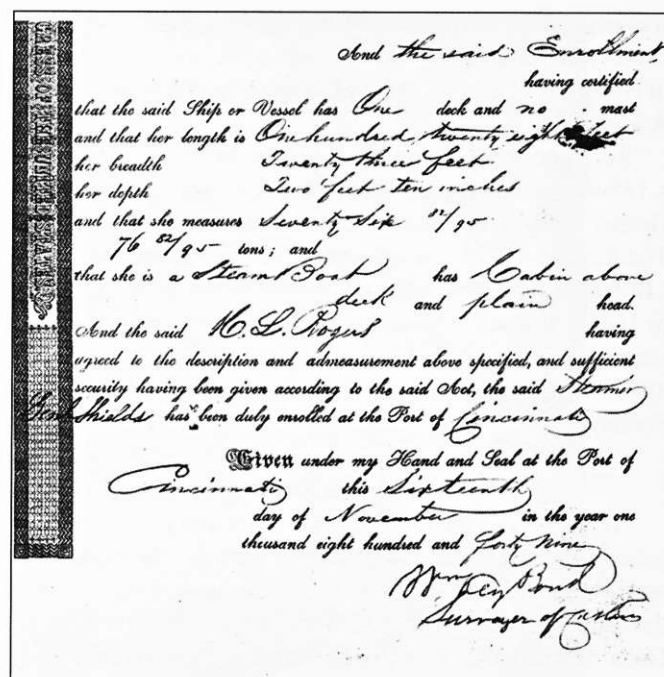 And the said Enrollment,
having certified
that the said Ship or Vessel has One deck and no mast
and that her length is One hundred twenty eight feet
her breadth Twenty three feet
her depth Two feet ten inches
and that she measures Seventy Six 52/95
76 52/95 tons; and
that she is a Steam Boat has Cabin above
deck and plain head.
And the said H. L. Rogers having
agreed to the description and admeasurement above specified, and sufficient
security having been given according to the said Act, the said Steamer
Genl Shields has been duly enrolled at the Port of Cincinnati
Given under my Hand and Seal at the Port of
Cincinnati this Sixteenth
day of November in the year one
thousand eight hundred and forty nine
Wm Bond
Surveyor of Customs